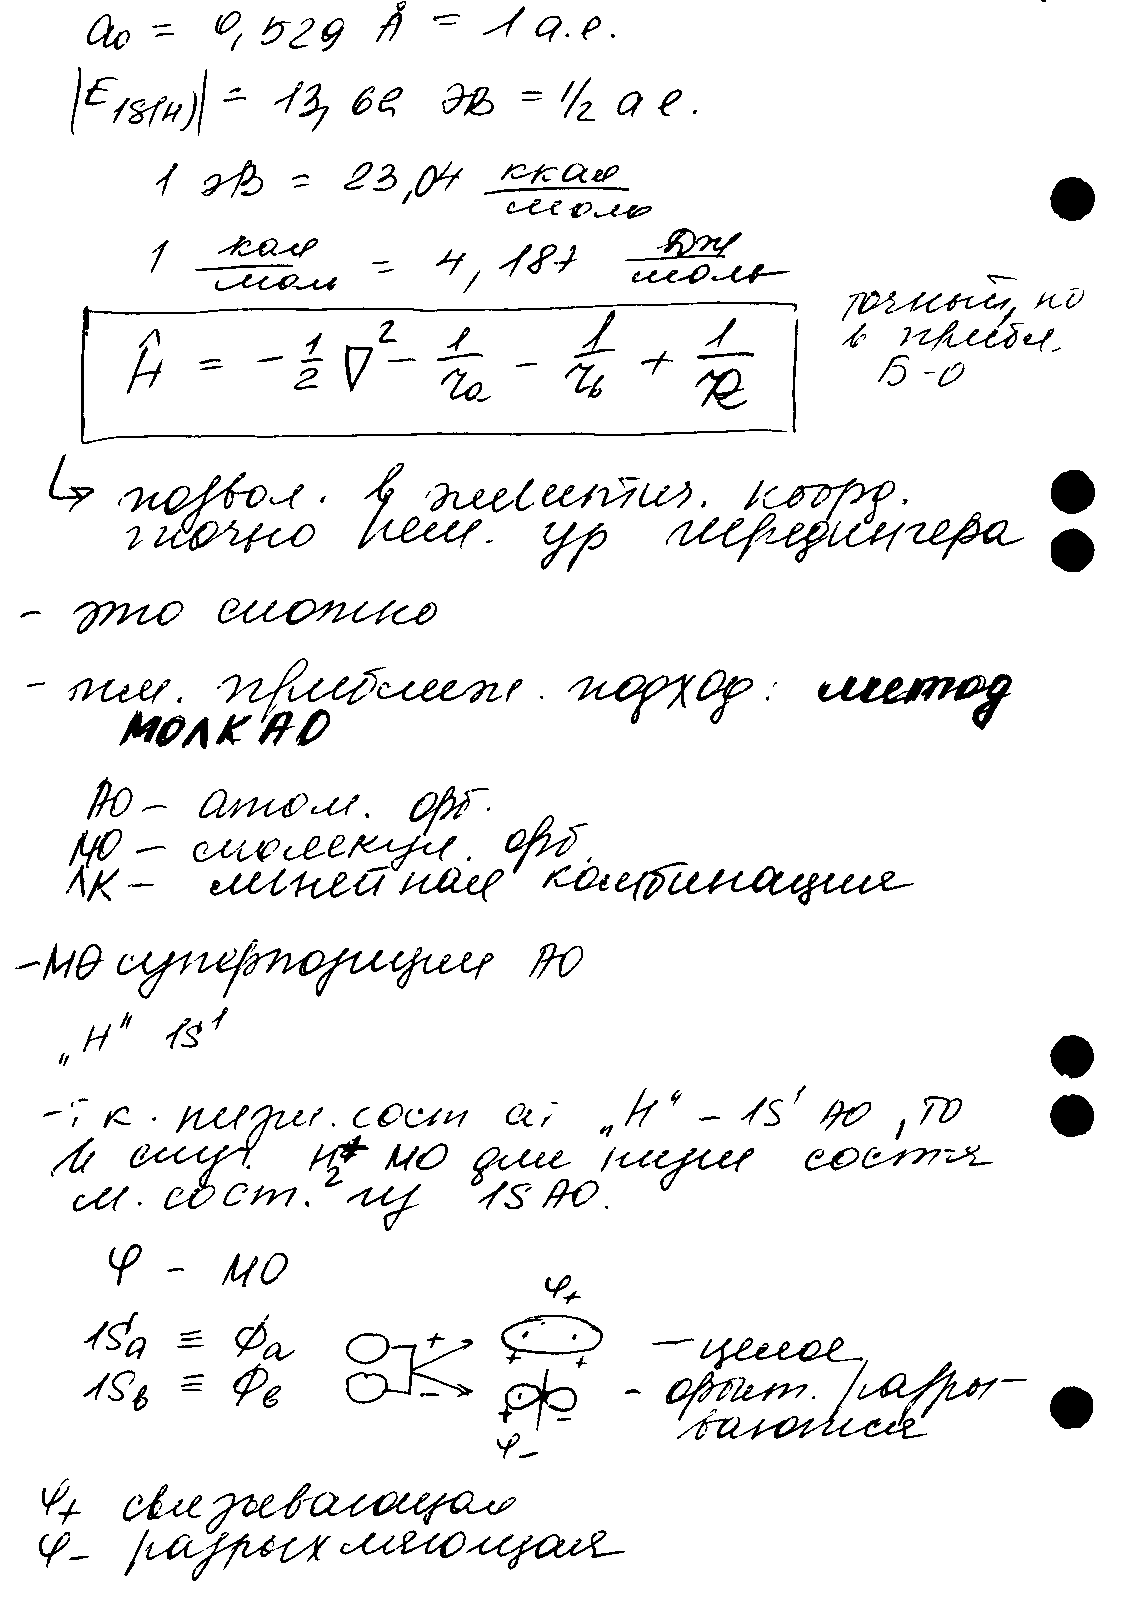 a₀ = 0,529 Å = 1 а.е.
|E 1S(H)| = 13,6 эВ = 1/2 а е.
1 эВ = 23,04 ккал/моль
1 кал/мол = 4,187 Дж/моль
Ĥ = - 1/2 ∇² - 1/rₐ - 1/r_b + 1/R
точный, но
в прибл.
Б-О
↳ позвол. в эллиптич. коорд.
точно реш. ур шредингера
- это сложно
- прибл­иж. подход: метод
МОЛКАО
АО - атом. орб.
МО - молекул. орб.
ЛК - линейная комбинация
- МО суперпозиции АО
„H" 1S¹
- т к. низш. сост ат „H" - 1S¹ АО, то
в случ. H₂⁺ МО для низш состя
м. сост. из 1S АО.
φ - МО
φ₊
1Sₐ ≡ Фₐ + + + - целое
1S_b ≡ Ф_b - + - - орбит. разры-
ваются
φ₋
φ₊ связывающая
φ₋ разрыхляющая